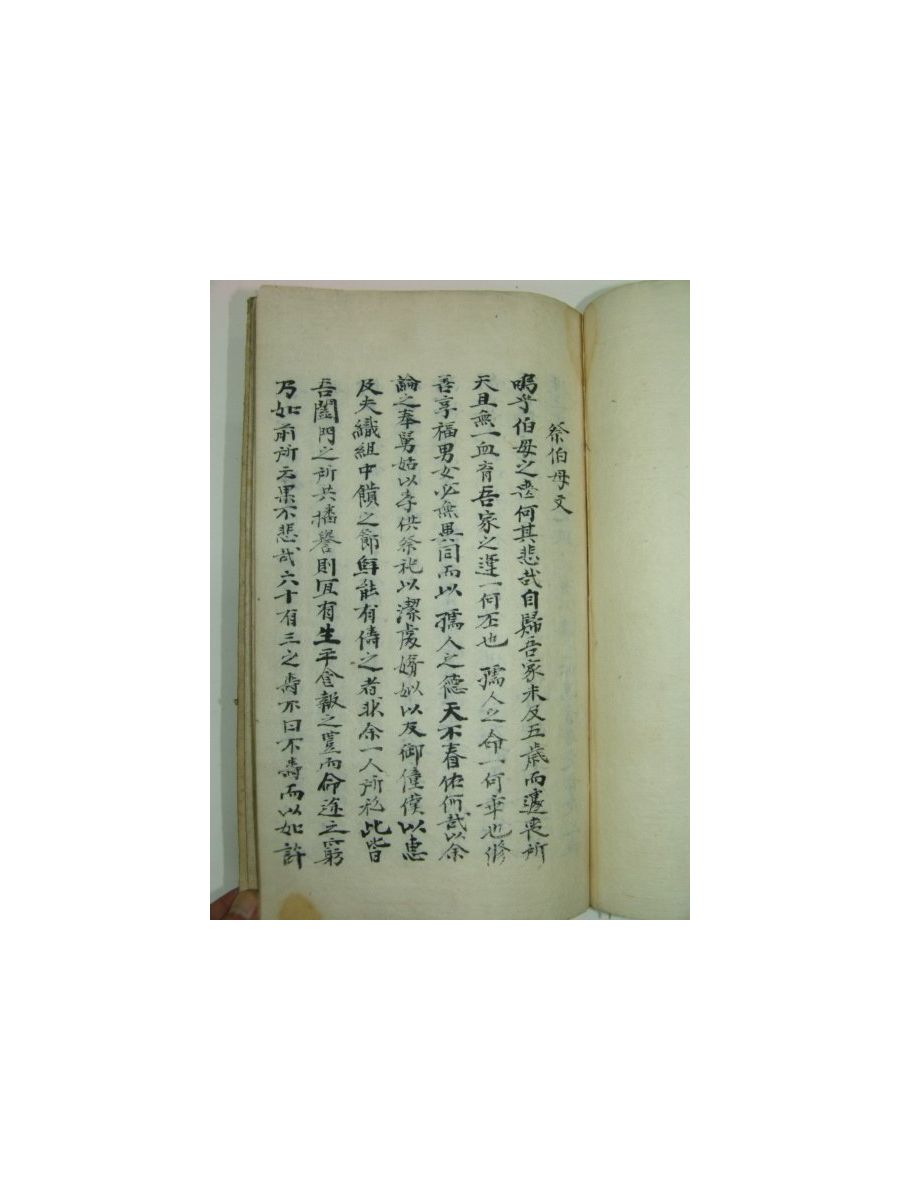 祭伯母文
嗚乎伯母之喪何其悲哉自歸吾家未及五歲而遽喪所
天且無一血育吾家之運一何否也孺人之命一何乖也修
善享福男女必無異同而以孺人之德天不眷佑何哉以余
論之奉舅姑以孝供祭祀以潔處娣姒以友御僮僕以惠
及夫織組中饋之節鮮能有儔之者非余一人所私此皆
吾閤門之所共播譽則宜有生平食報之豐而命途之窮
乃如前所云果不悲哉六十有三之壽不曰不壽而以如許